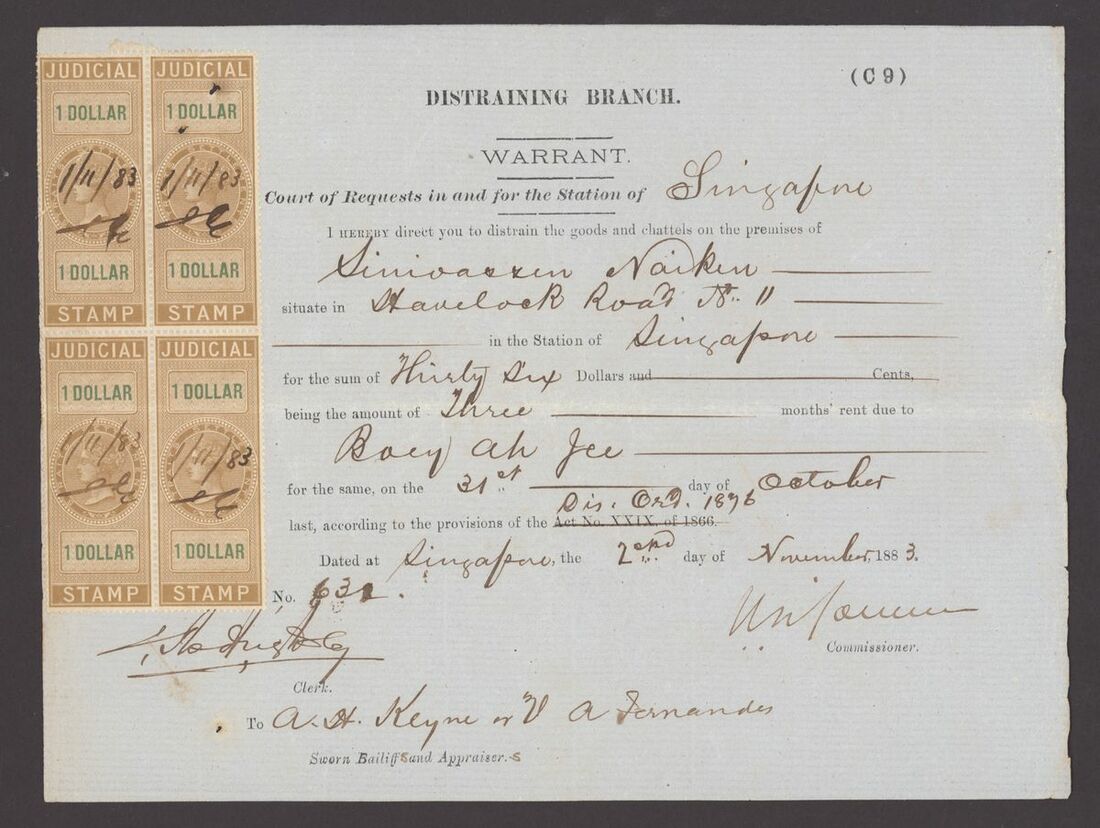 JUDICIAL
1 DOLLAR
1/11/83
1 DOLLAR
STAMP
JUDICIAL
1 DOLLAR
1/11/83
1 DOLLAR
STAMP
JUDICIAL
1 DOLLAR
1/11/83
1 DOLLAR
STAMP
JUDICIAL
1 DOLLAR
1/11/83
1 DOLLAR
STAMP
(C 9)
DISTRAINING BRANCH.
WARRANT.
Court of Requests in and for the Station of Singapore
I HEREBY direct you to distrain the goods and chattels on the premises of
Sinivassen Naiken
situate in Havelock Road No. 11
in the Station of Singapore
for the sum of Thirty Six Dollars and Cents,
being the amount of Three months' rent due to
Boey Ah Jee
for the same, on the 31st day of October
Dis. Ord. 1876
last, according to the provisions of the Act No. XXIX, of 1866.
Dated at Singapore, the 2nd day of November, 1883.
No. 632.
Commissioner.
Clerk.
To A. H. Keyne or V A Fernandes
Sworn Bailiffs and Appraiser.s